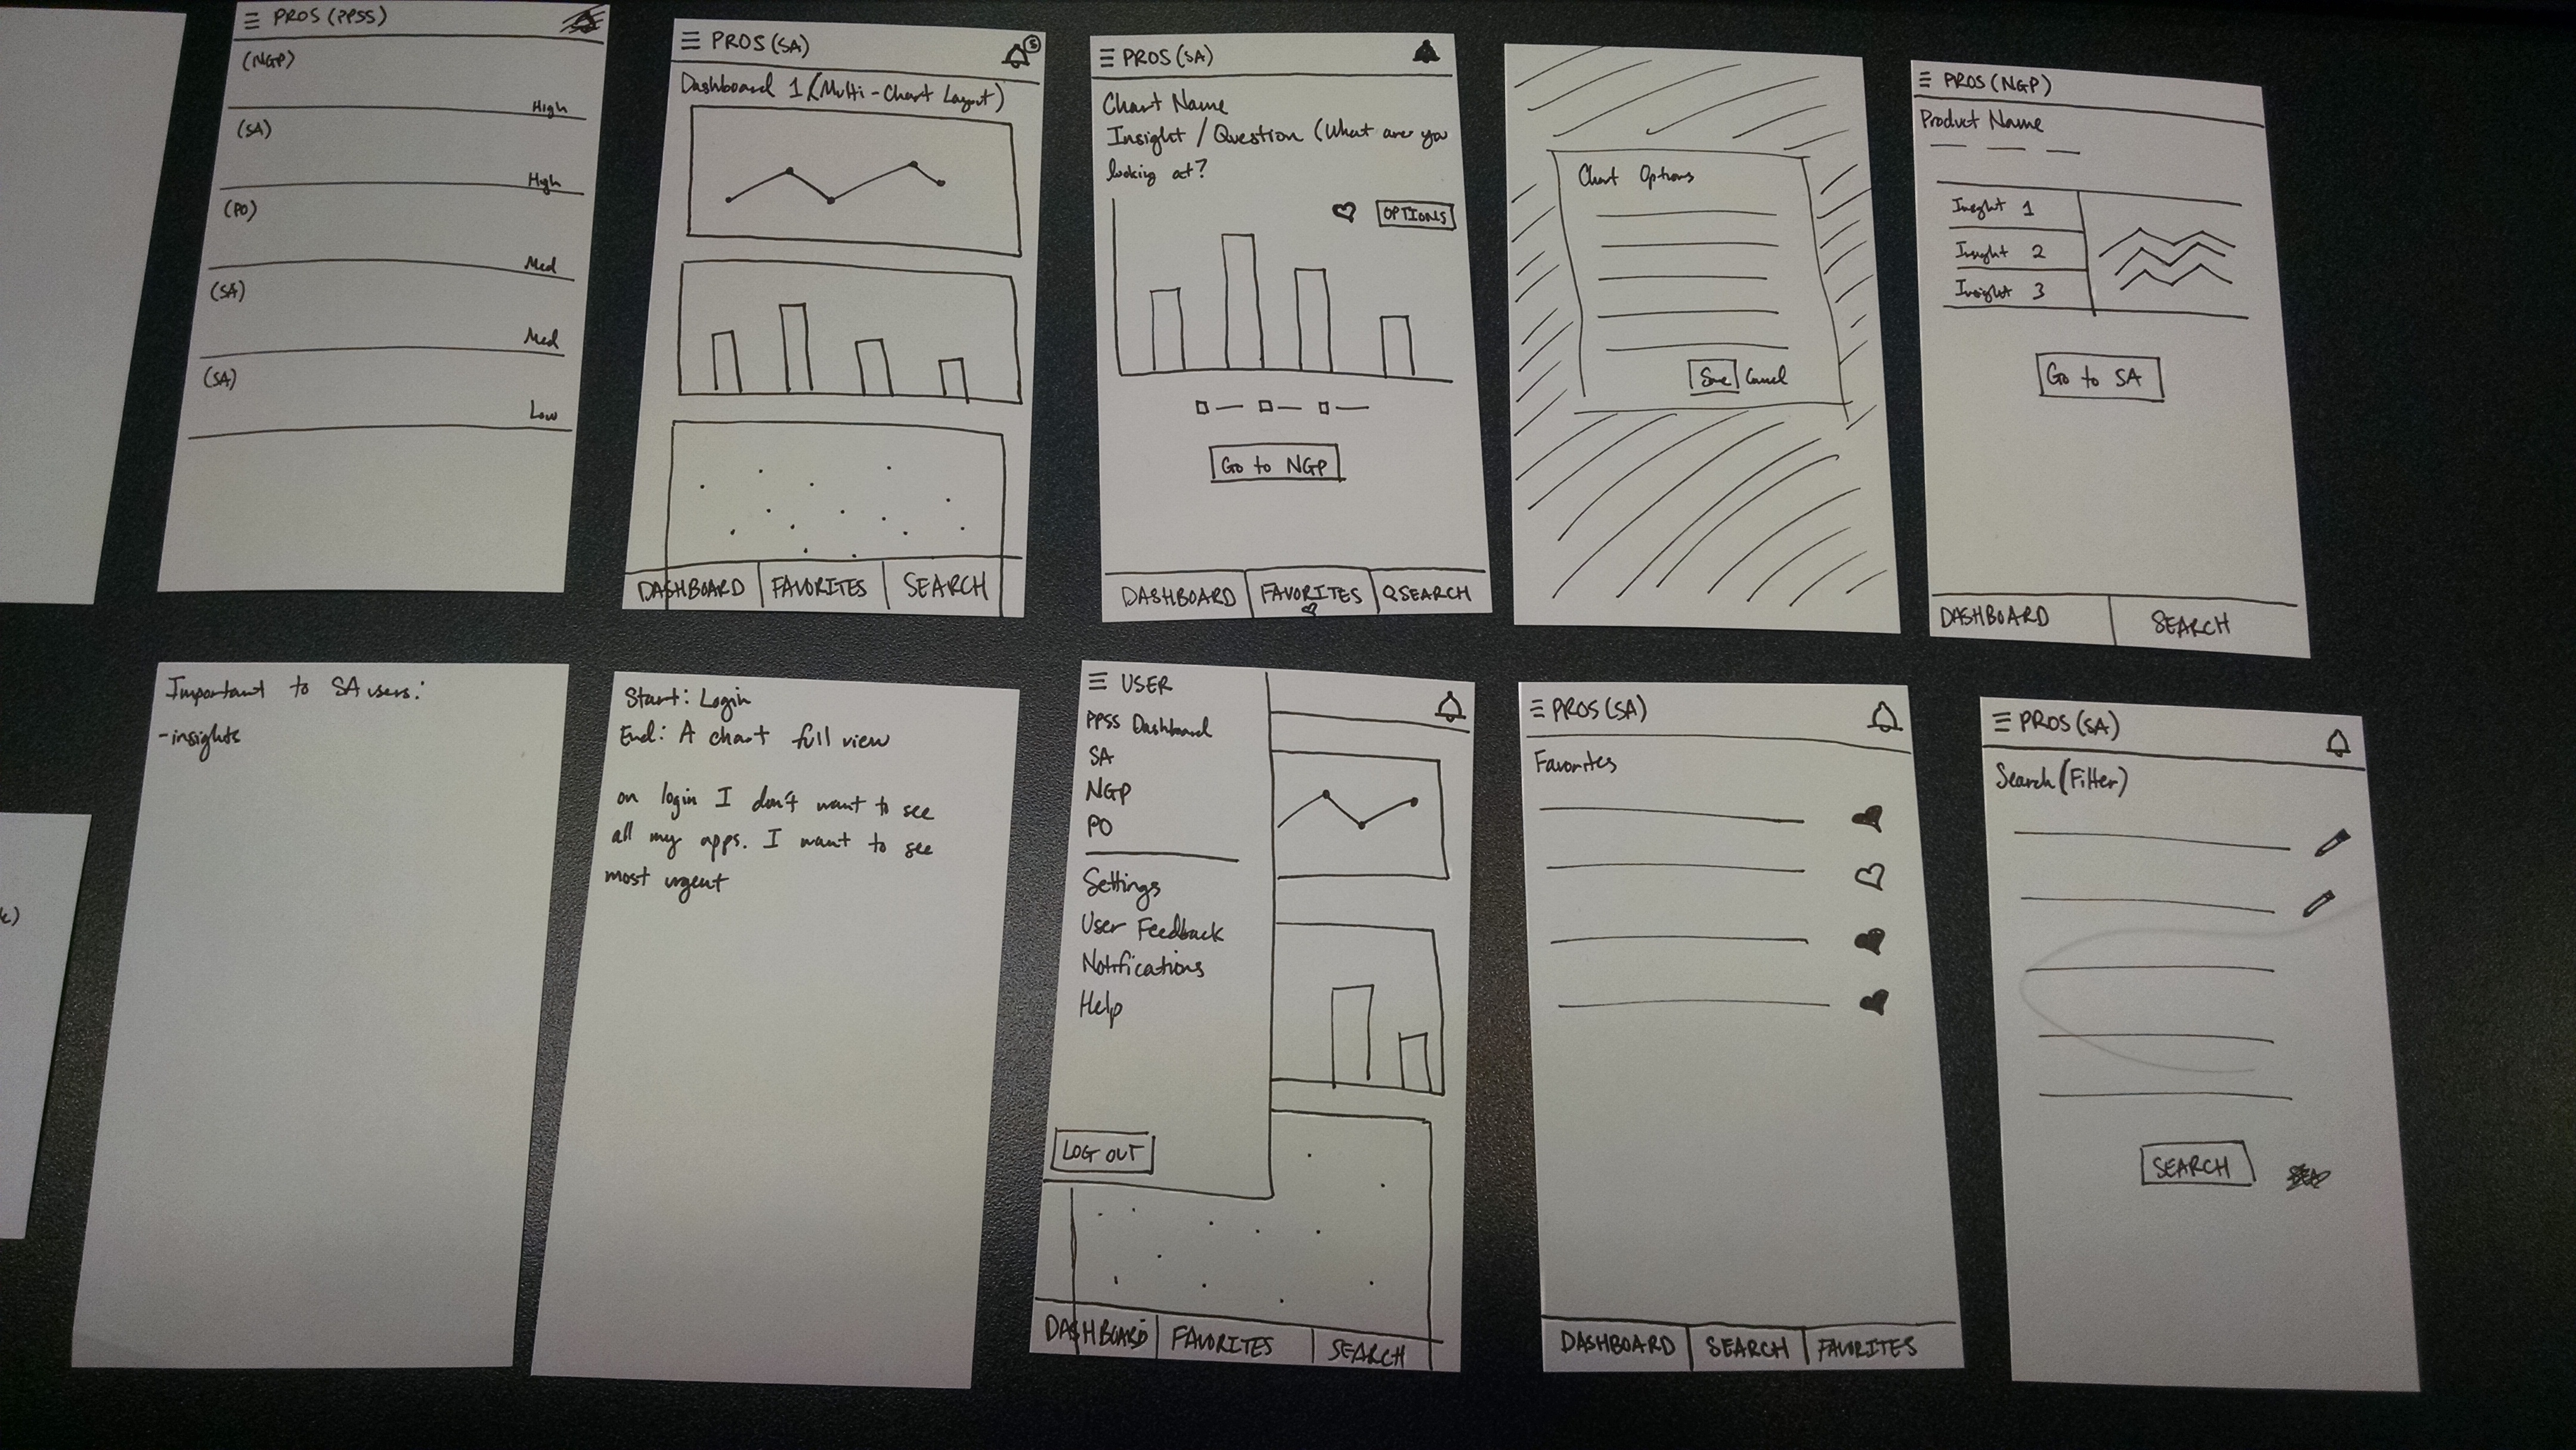 PROS (PPSS)
(NGP)
High
(SA)
High
(PO)
Med
(SA)
Med
(SA)
Low
PROS (SA)
5
Dashboard 1 (Multi-Chart Layout)
DASHBOARD FAVORITES SEARCH
PROS (SA)
Chart Name
Insight / Question (What are you
looking at?
OPTIONS
Go to NGP
DASHBOARD FAVORITES SEARCH
Chart Options
Save Cancel
PROS (NGP)
Product Name
Insight 1
Insight 2
Insight 3
Go to SA
DASHBOARD SEARCH
Important to SA users:
-insights
Start: Login
End: A chart full view
on login I don't want to see
all my apps. I want to see
most urgent
USER
PPSS Dashboard
SA
NGP
PO
Settings
User Feedback
Notifications
Help
LOG OUT
DASHBOARD FAVORITES SEARCH
PROS (SA)
Favorites
DASHBOARD SEARCH FAVORITES
PROS (SA)
Search (Filter)
SEARCH